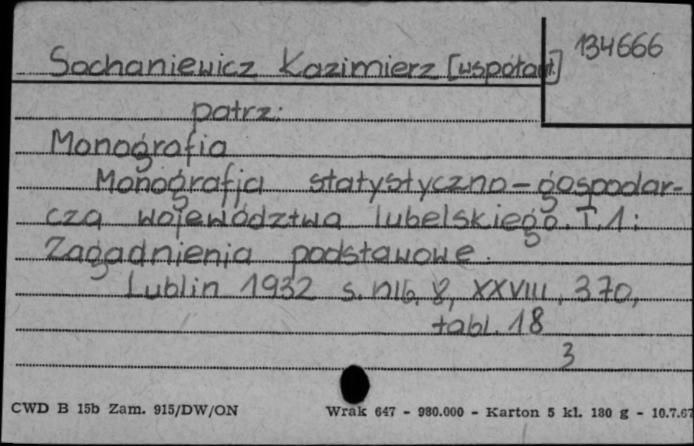 134666
Sochaniewicz Kazimierz [współaut.]
patrz:
Monografia
Monografja statystyczno-gospodar-
cza województwa lubelskiego. T. 1:
Zagadnienia podstawowe.
Lublin 1932 s. nlb. 8, XXVIII, 370,
tabl. 18
3
CWD B 15b Zam. 915/DW/ON Wrak 647 - 980.000 - Karton 5 kl. 180 g - 10.7.67